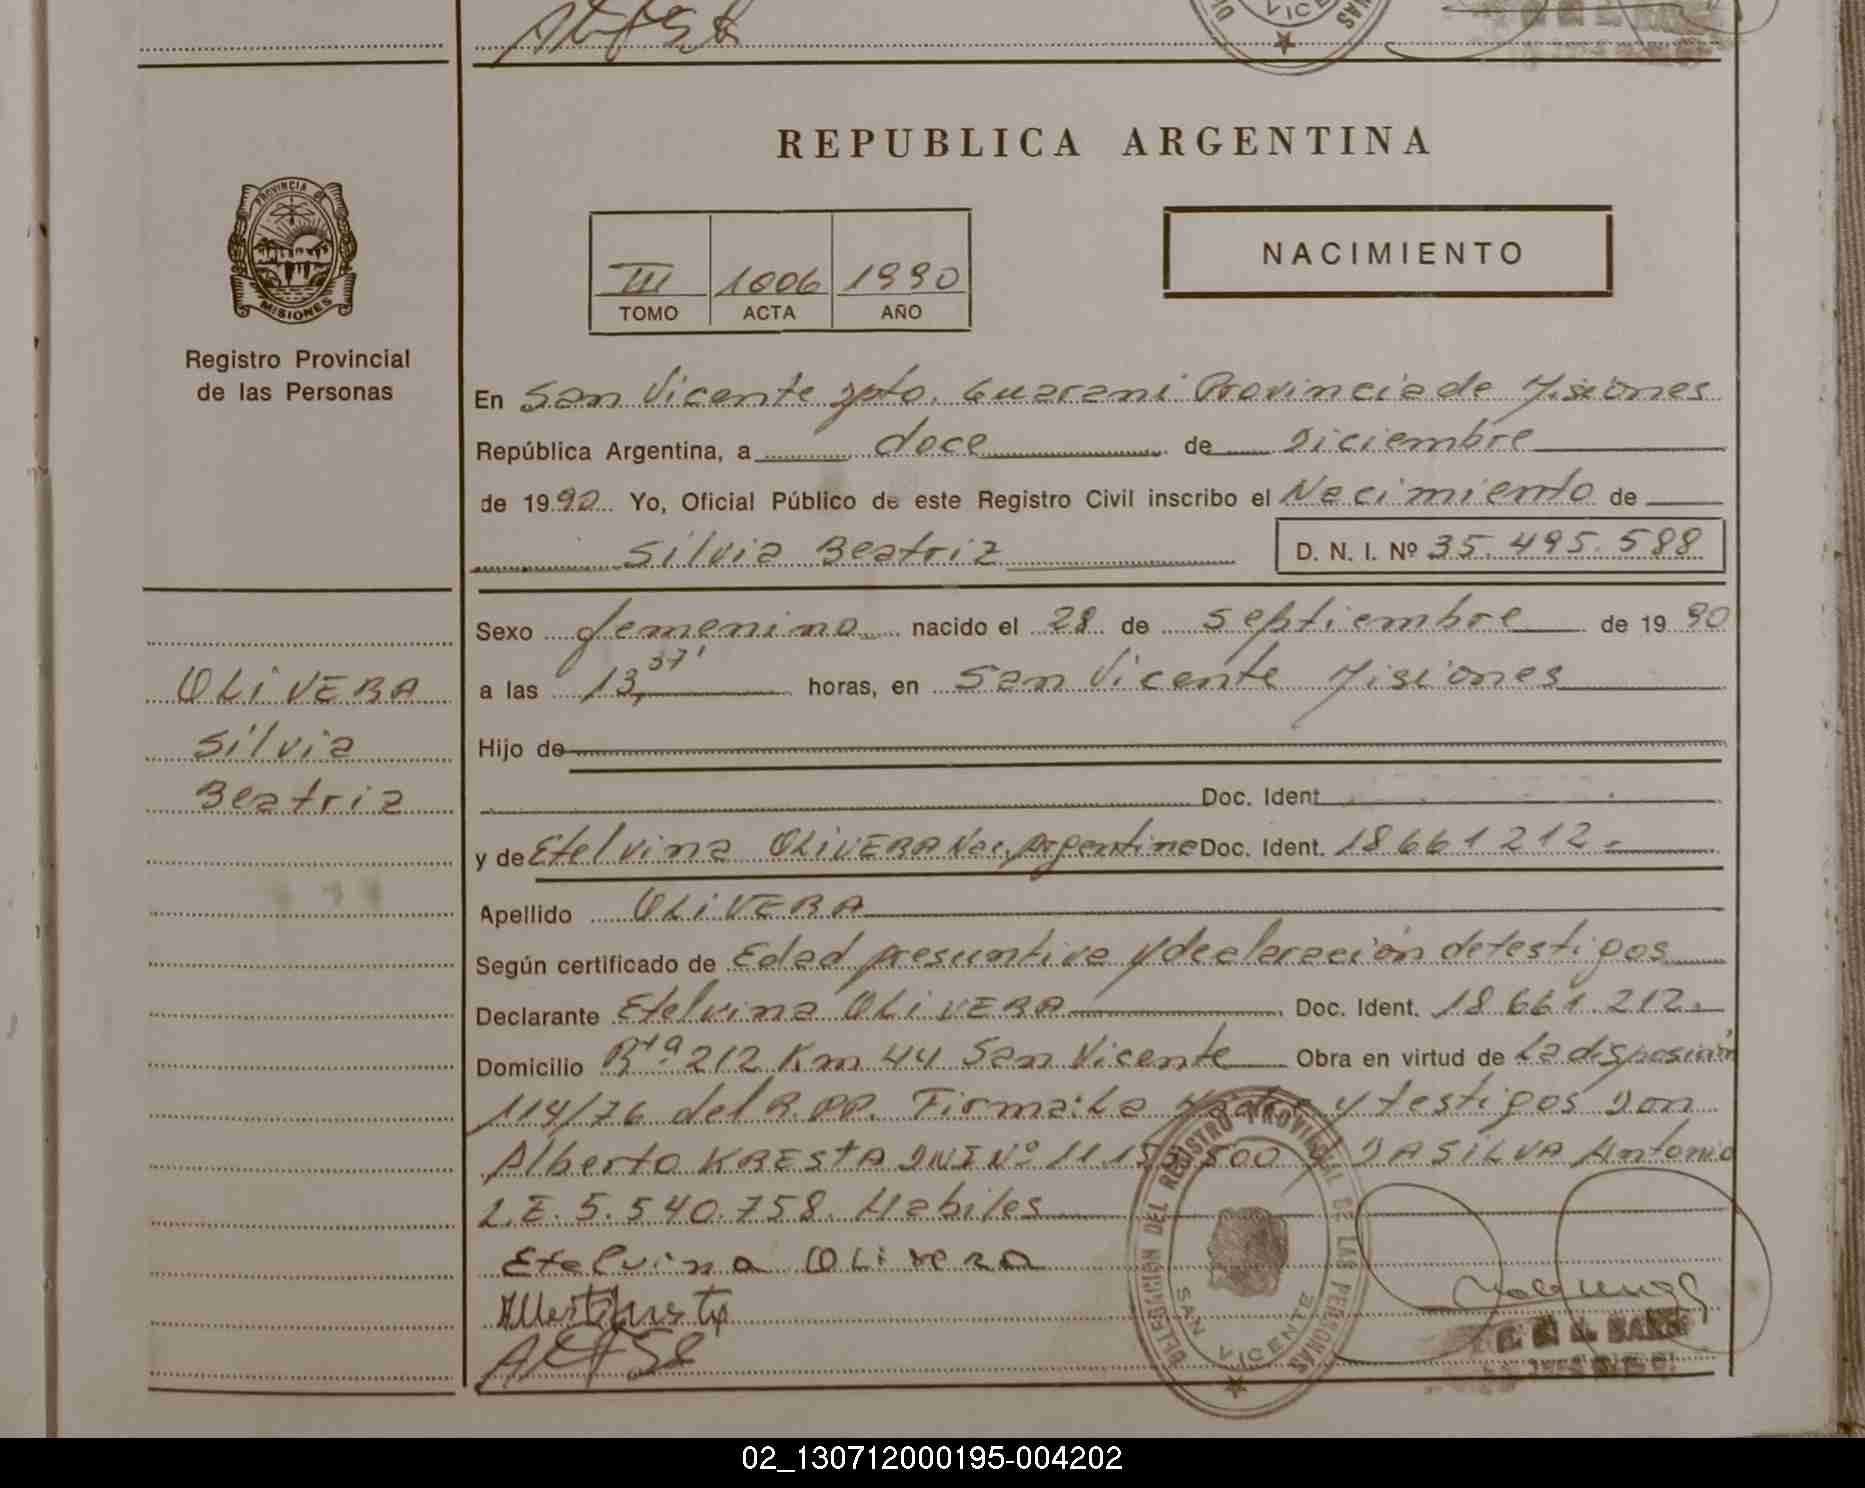 REPUBLICA ARGENTINA
PROVINCIA DE
MISIONES
Registro Provincial
de las Personas
III 1006 1990
TOMO ACTA AÑO
NACIMIENTO
En San Vicente Dpto. Guaraní Provincia de Misiones
República Argentina, a doce de Diciembre
de 1990 Yo, Oficial Público de este Registro Civil inscribo el Nacimiento de
Silvia Beatriz D. N. I. Nº 35.495.588
OLiVERA
Silvia
Beatriz
Sexo femenino nacido el 28 de Septiembre de 1990
a las 13,37' horas, en San Vicente Misiones
Hijo de
Doc. Ident.
y de Etelvina OLiVERA Nac. Argentina Doc. Ident. 18661212-
Apellido OLiVERA
Según certificado de Edad presuntiva y declaración de testigos
Declarante Etelvina OLiVERA Doc. Ident. 18.661.212-
Domicilio Rta 212 Km 44 San Vicente Obra en virtud de La disposición
114/76 del R.PP. Firma: La Madre y testigos Don
Alberto KRESTA DNI Nº 11.15 500 y DASiLVA Antonio
L.E. 5.540.758. Habiles
Etelvina OLivera
DELEGACION DEL REGISTRO PROVINCIAL DE LAS PERSONAS
SAN VICENTE
02_130712000195-004202